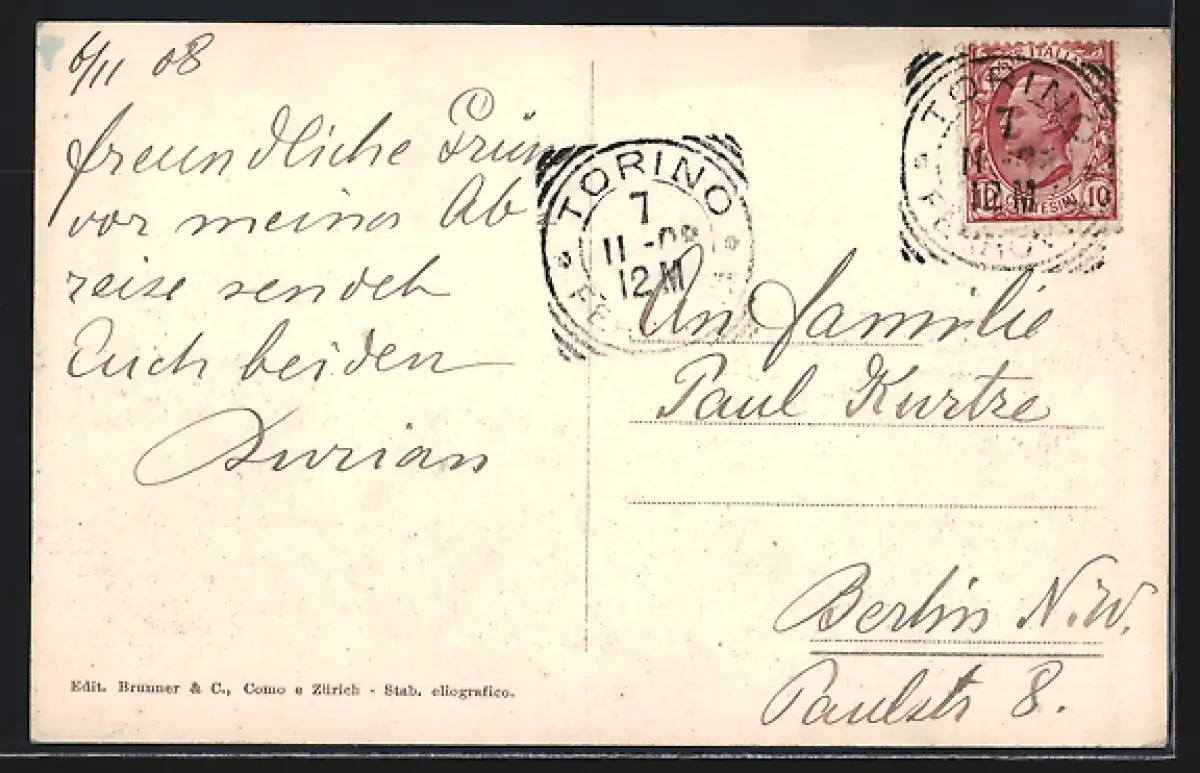 6/11 08
freundliche Grüs
vor meiner Ab
reise sendet
Euch beiden
Durian
Edit. Brunner & C., Como e Zürich - Stab. eliografico.
TORINO
7
11 -08
12 M
TORINO
7
11 -08
12 M
FERROVIA
10
10
An Familie
Paul Kurtze
Berlin N.W.
Paulstr 8.